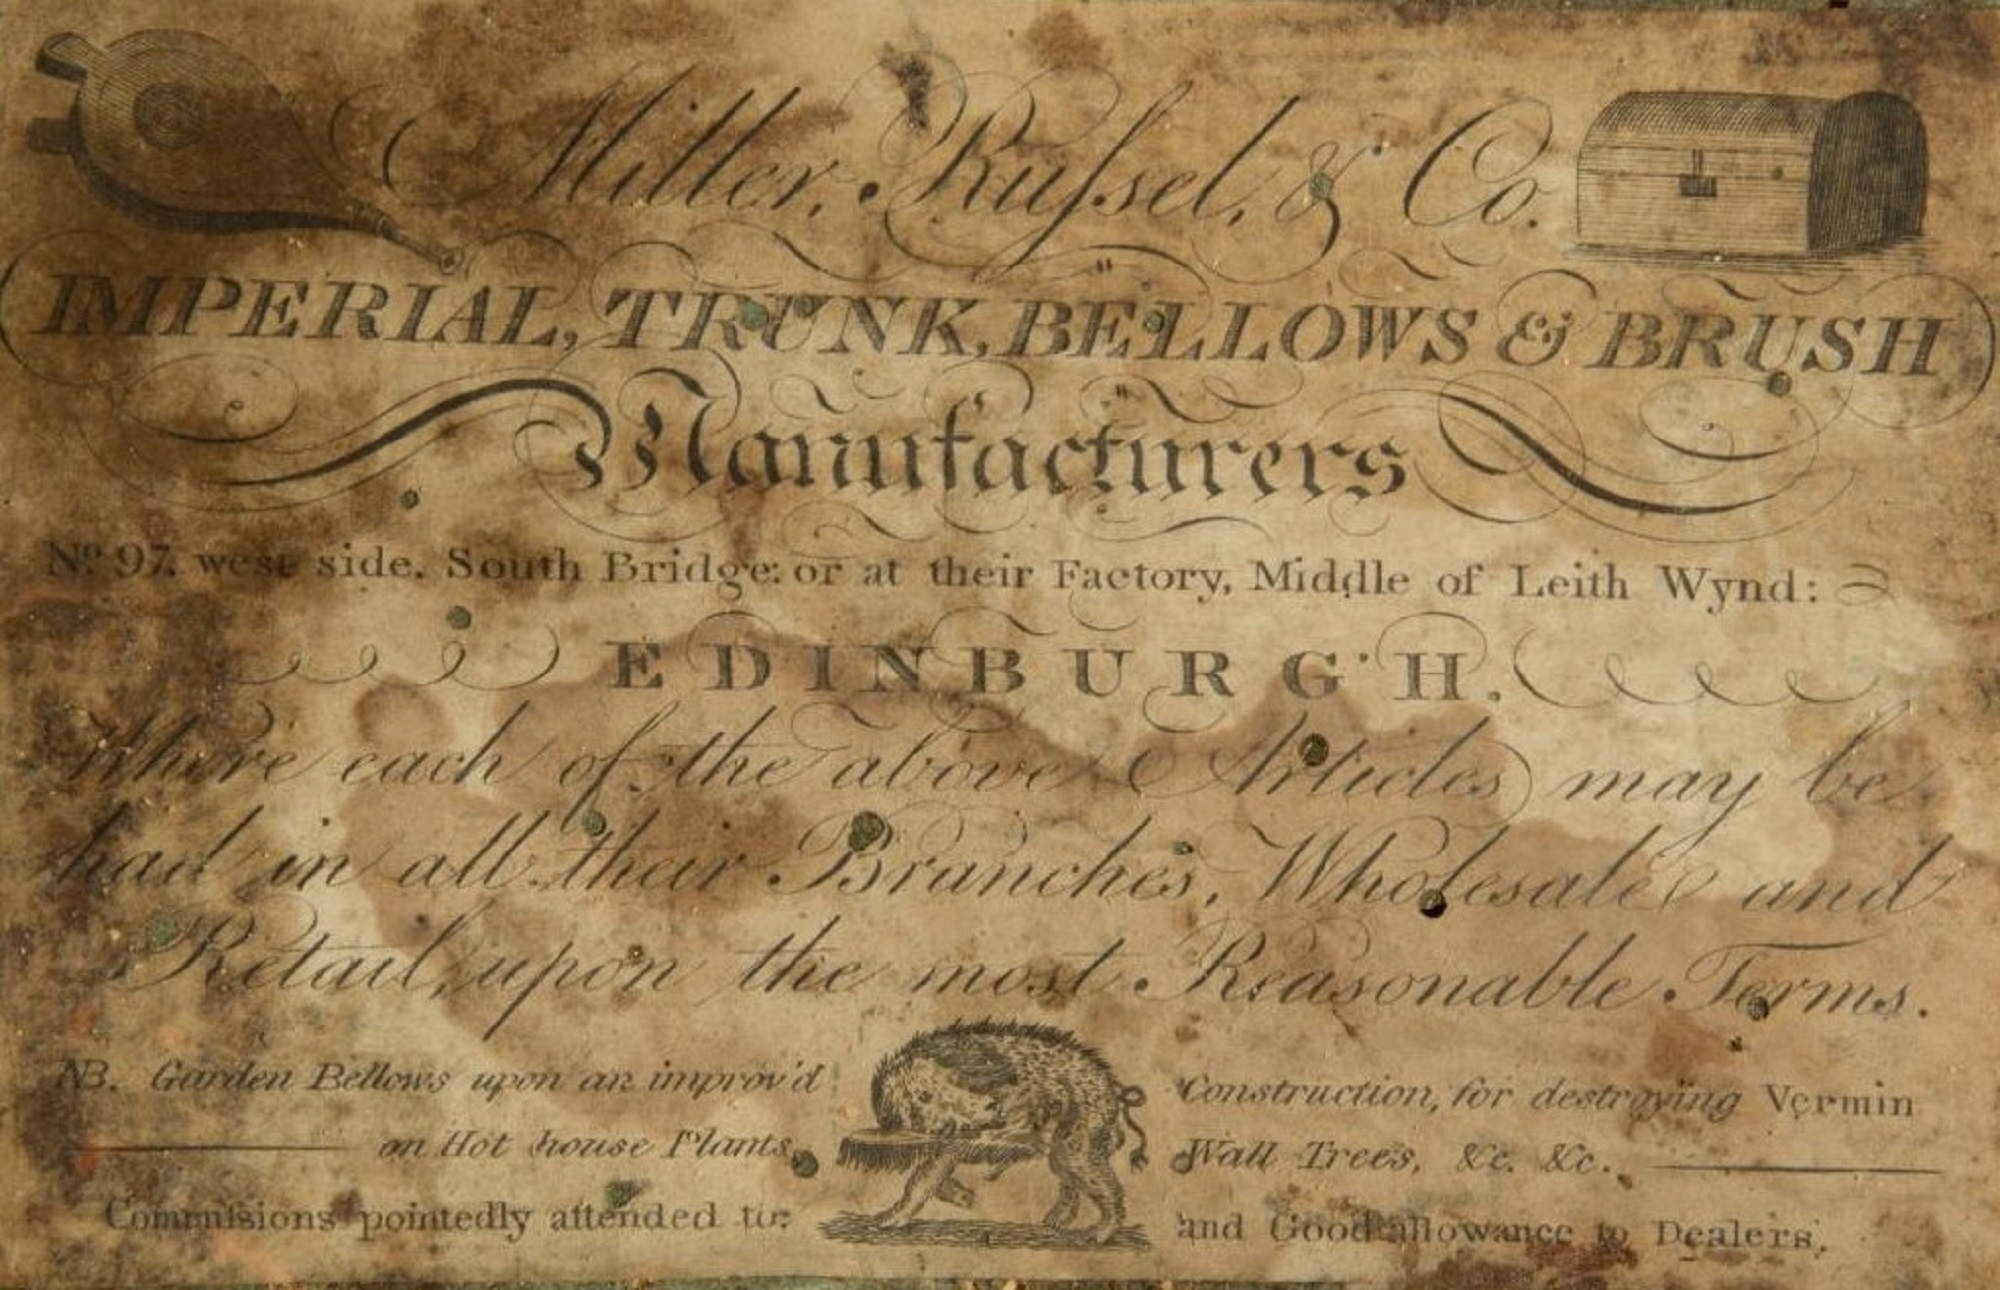 Miller, Ruſsel, & Co.
IMPERIAL, TRUNK, BELLOWS & BRUSH
Manufacturers
No. 97. west side. South Bridge: or at their Factory, Middle of Leith Wynd:
EDINBURGH.
Where each of the above Articles may be
had in all their Branches, Wholesale and
Retail, upon the most Reasonable Terms.
NB. Garden Bellows upon an improv'd Construction, for destroying Vermin
on Hot house Plants, Wall Trees, &c. &c.
Commissions pointedly attended to: and Good allowance to Dealers.